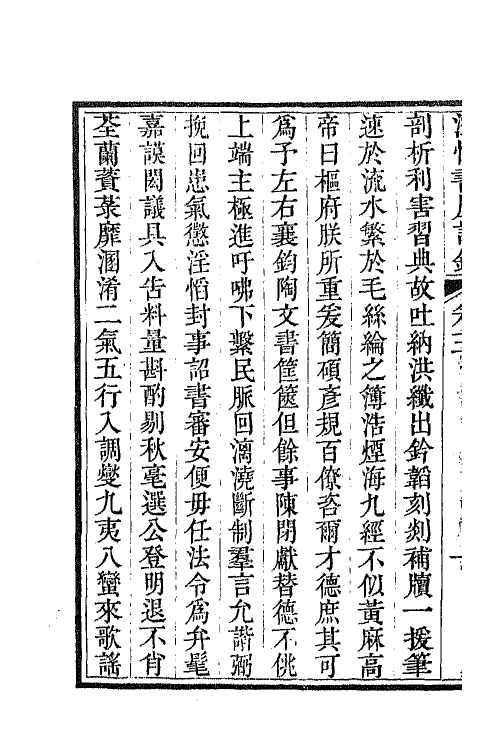 剖析利害習典故吐納洪纖出鈐韜刻剡補牘一援筆
速於流水繁於毛絲綸之簿浩煙海九經不似黃麻高
帝曰樞府朕所重爰簡碩彥規百僚咨爾才德庶其可
爲予左右襄鈞陶文書筐篋但餘事陳閉獻替德不佻
上端主極進吁咈下繫民脈回漓澆斷制羣言允諧弼
挽回忠氣懲淫慆封事詔書審安便毋任法令爲弁髦
嘉謨閎議具入告料量斟酌剔秋毫選公登明退不肖
荃蘭薋菉靡溷淆二氣五行入調燮九夷八蠻來歌謠